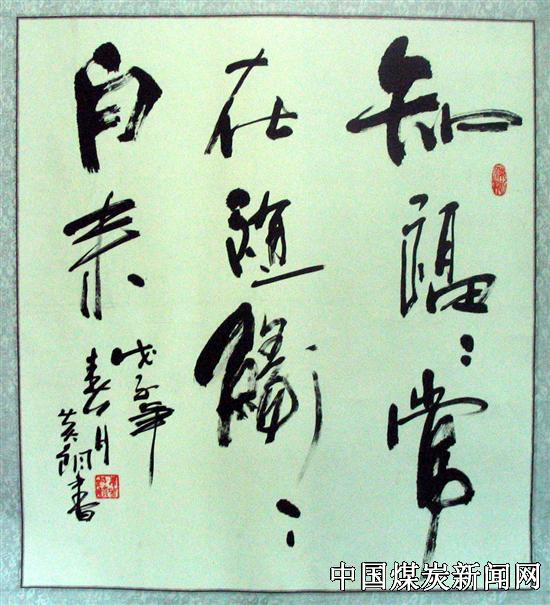 知福：常
在随缘：
自来
戊子年
春月
书
中国煤炭新闻网